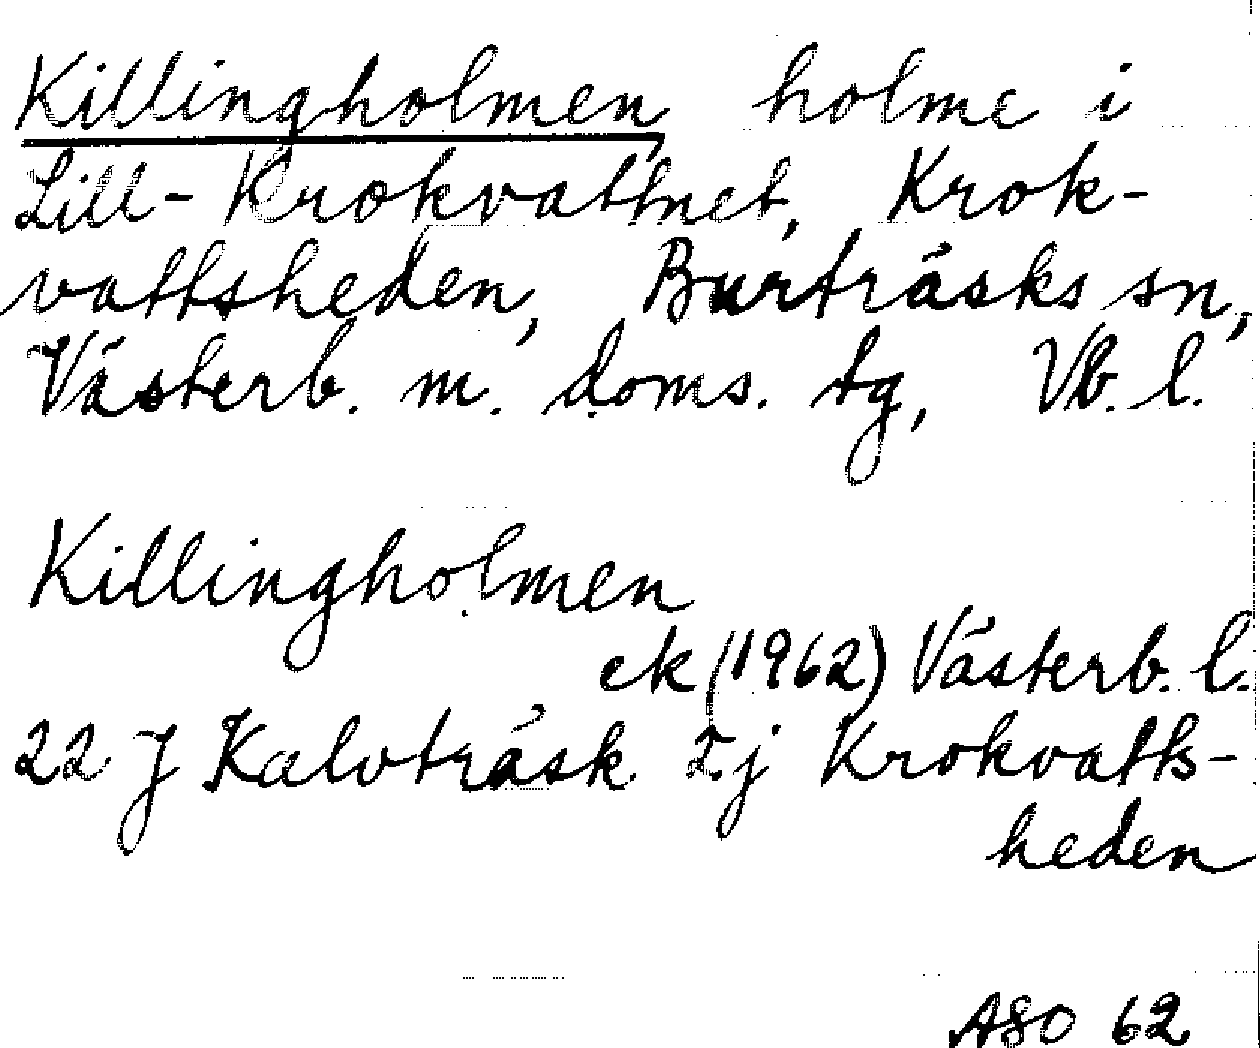 Killingholmen, holme i
Lill-Krokvattnet, Krok-
vattsheden, Burträsks sn,
Västerb. m. doms. tg, Vb. l.
Killingholmen
ek (1962) Västerb. l.
22 J Kalvträsk 2j Krokvatts-
heden
ASO 62